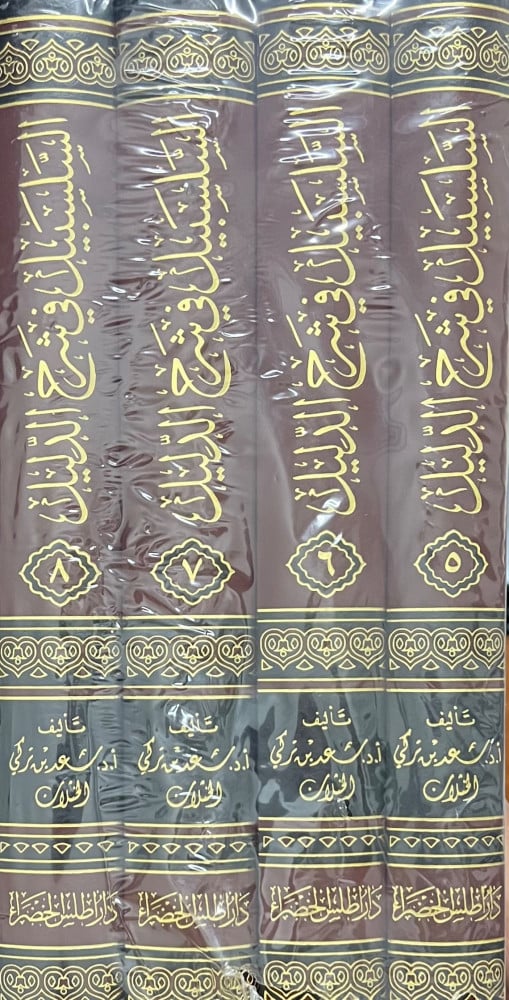 السلسبيل في شرح الدليل
٥
تأليف
أ.د. سعد بن تركي
الخثلان
دار أطلس الخضراء
السلسبيل في شرح الدليل
٦
تأليف
أ.د. سعد بن تركي
الخثلان
دار أطلس الخضراء
السلسبيل في شرح الدليل
٧
تأليف
أ.د. سعد بن تركي
الخثلان
دار أطلس الخضراء
السلسبيل في شرح الدليل
٨
تأليف
أ.د. سعد بن تركي
الخثلان
دار أطلس الخضراء